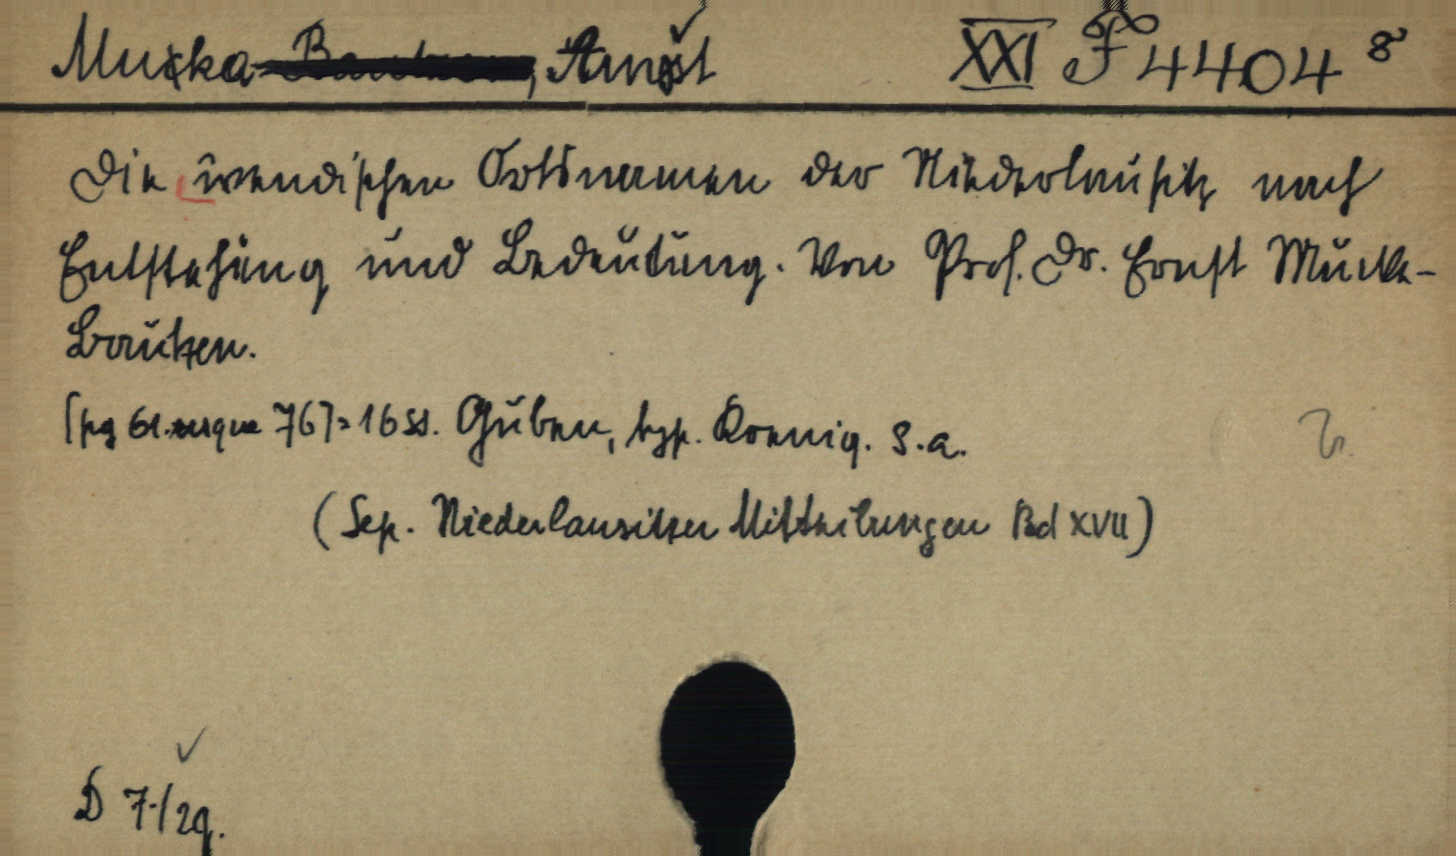 Muka, Arnošt XXI F 4404 8°
Die wendischen Ortsnamen der Niederlausitz nach
Entstehung und Bedeutung. Von Prof. Dr. Ernst Mucke-
Bautzen.
[pg 61 usque 76] = 16 SS. Guben, typ. Koenig. s.a.
(Sep. Niederlausitzer Mittheilungen Bd XVII)
D 7/29.